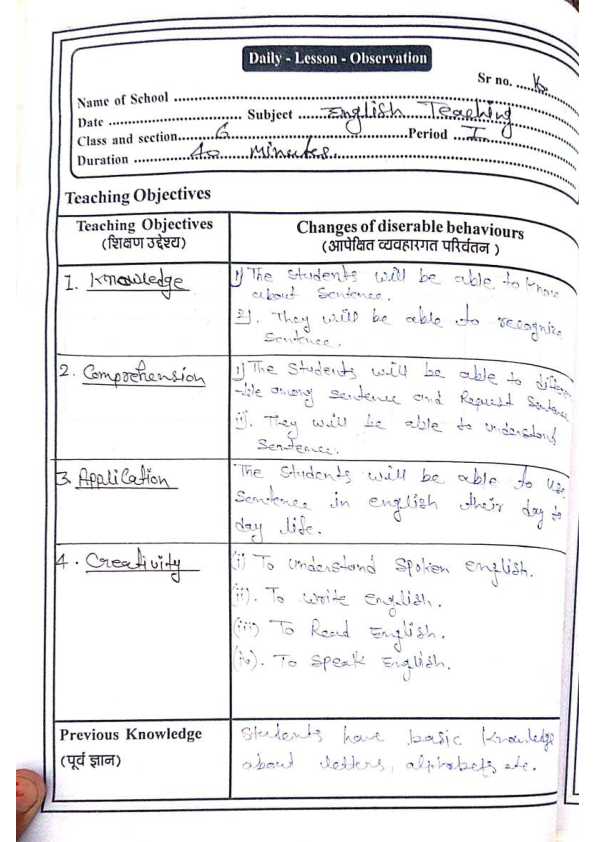 Daily - Lesson - Observation
Sr no. ....
Name of School ....
Date .... Subject .... English Teaching
Class and section.... 6 .... Period .... I ....
Duration .... 40 Minutes....
Teaching Objectives
Teaching Objectives
(शिक्षण उद्देश्य)
Changes of diserable behaviours
(आपेक्षित व्यवहारगत परिर्वतन )
1. Knowledge
i) The students will be able to know
about Sentence.
2). They will be able to recognize
Sentence.
2. Comprehension
i) The Students will be able to differen
-tiate among sentence and Request Sentence
ii). They will be able to understand
Sentence.
3. Application
The Students will be able to use
Sentence in english their day to
day life.
4. Creativity
(i) To understand Spoken english.
(ii). To write English.
(iii) To Read English.
(iv). To Speak English.
Previous Knowledge
(पूर्व ज्ञान)
Students have basic Knowledge
about letters, alphabets etc.